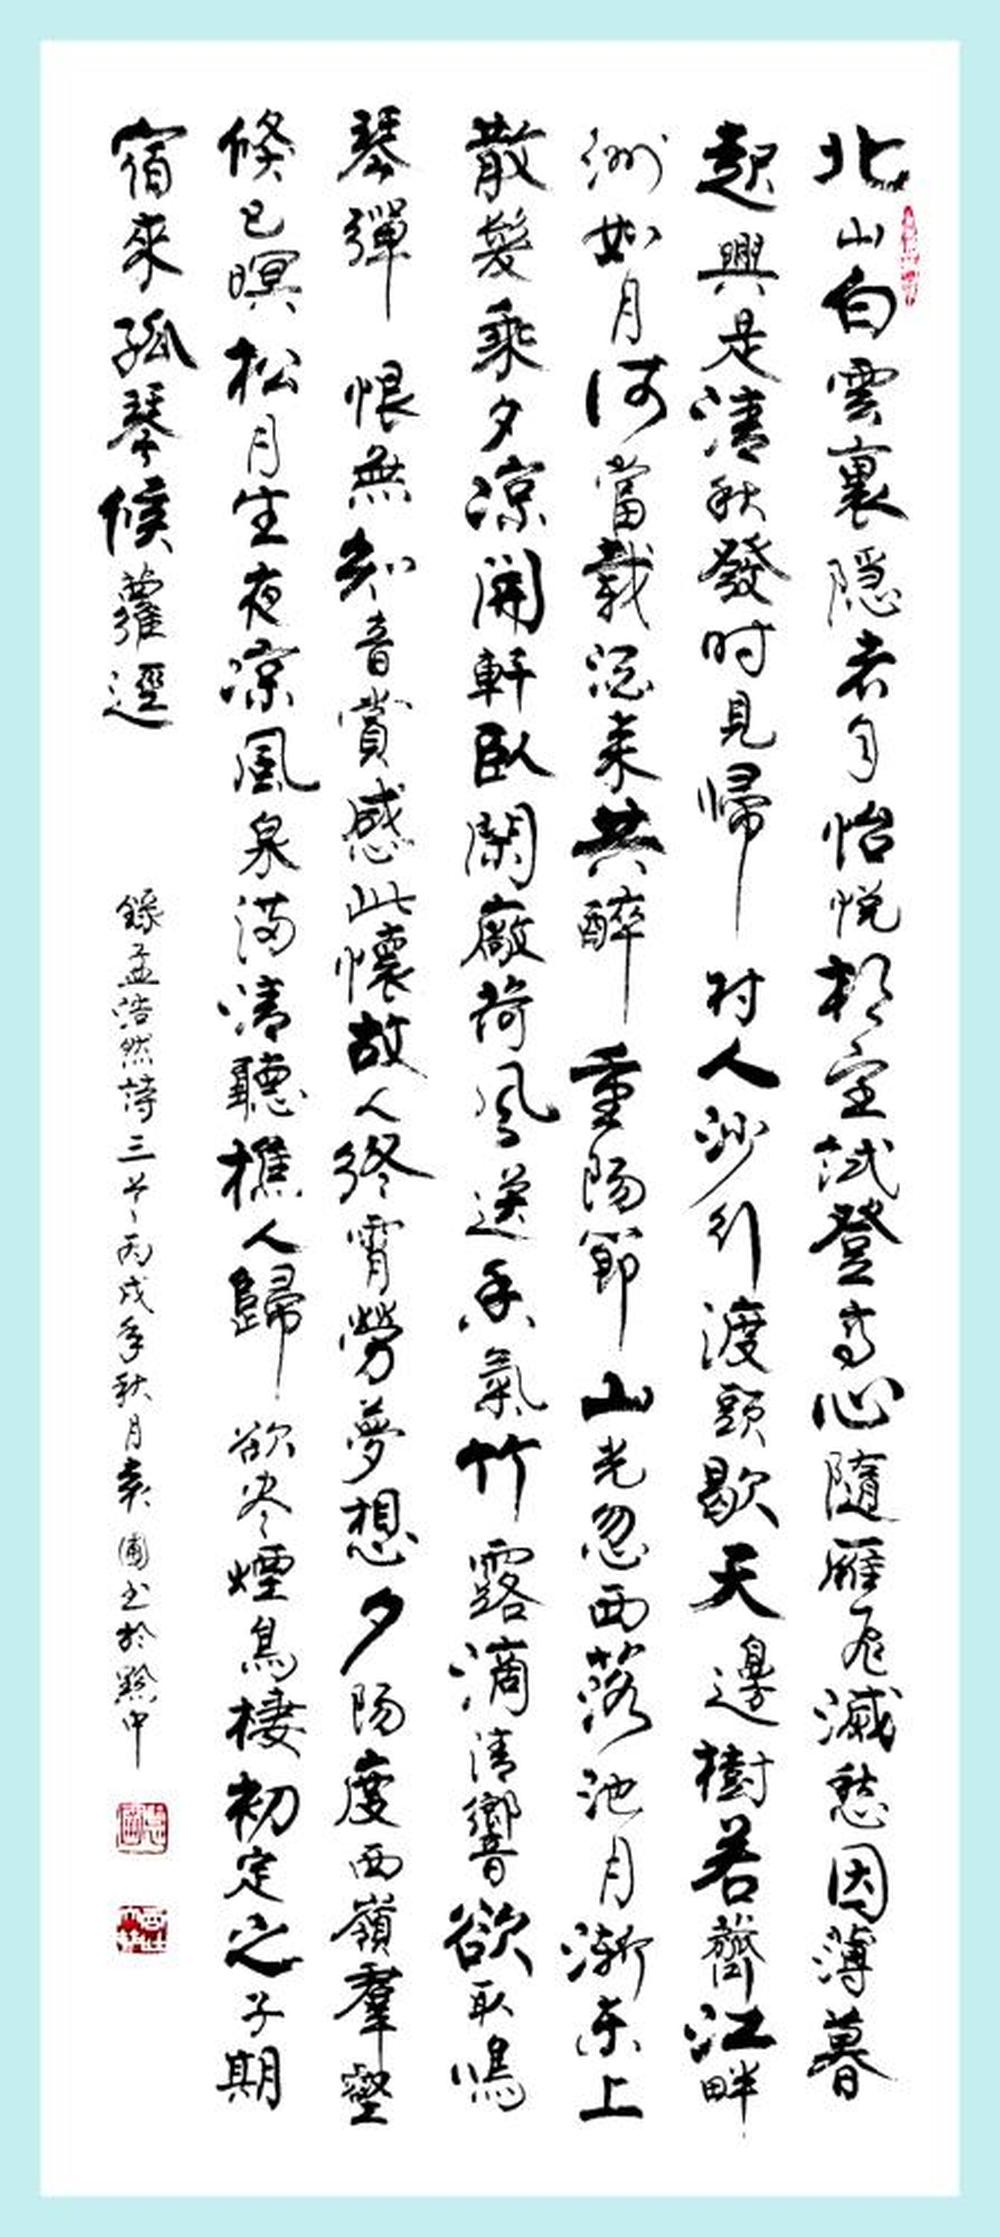 北山白雲裏隱者自怡悅相望試登高心隨雁飛滅愁因薄暮
起興是清秋發時見歸村人沙行渡頭歇天邊樹若薺江畔
洲如月何當載酒來共醉重陽節山光忽西落池月漸東上
散髮乘夕涼開軒臥閑敞荷風送香氣竹露滴清響欲取鳴
琴彈恨無知音賞感此懷故人終霄勞夢想夕陽度西嶺羣壑
倏已暝松月生夜涼風泉滿清聽樵人歸欲盡煙鳥棲初定之子期
宿來孤琴候蘿逕
錄孟浩然詩三首丙戌年秋月 圃書於黔中